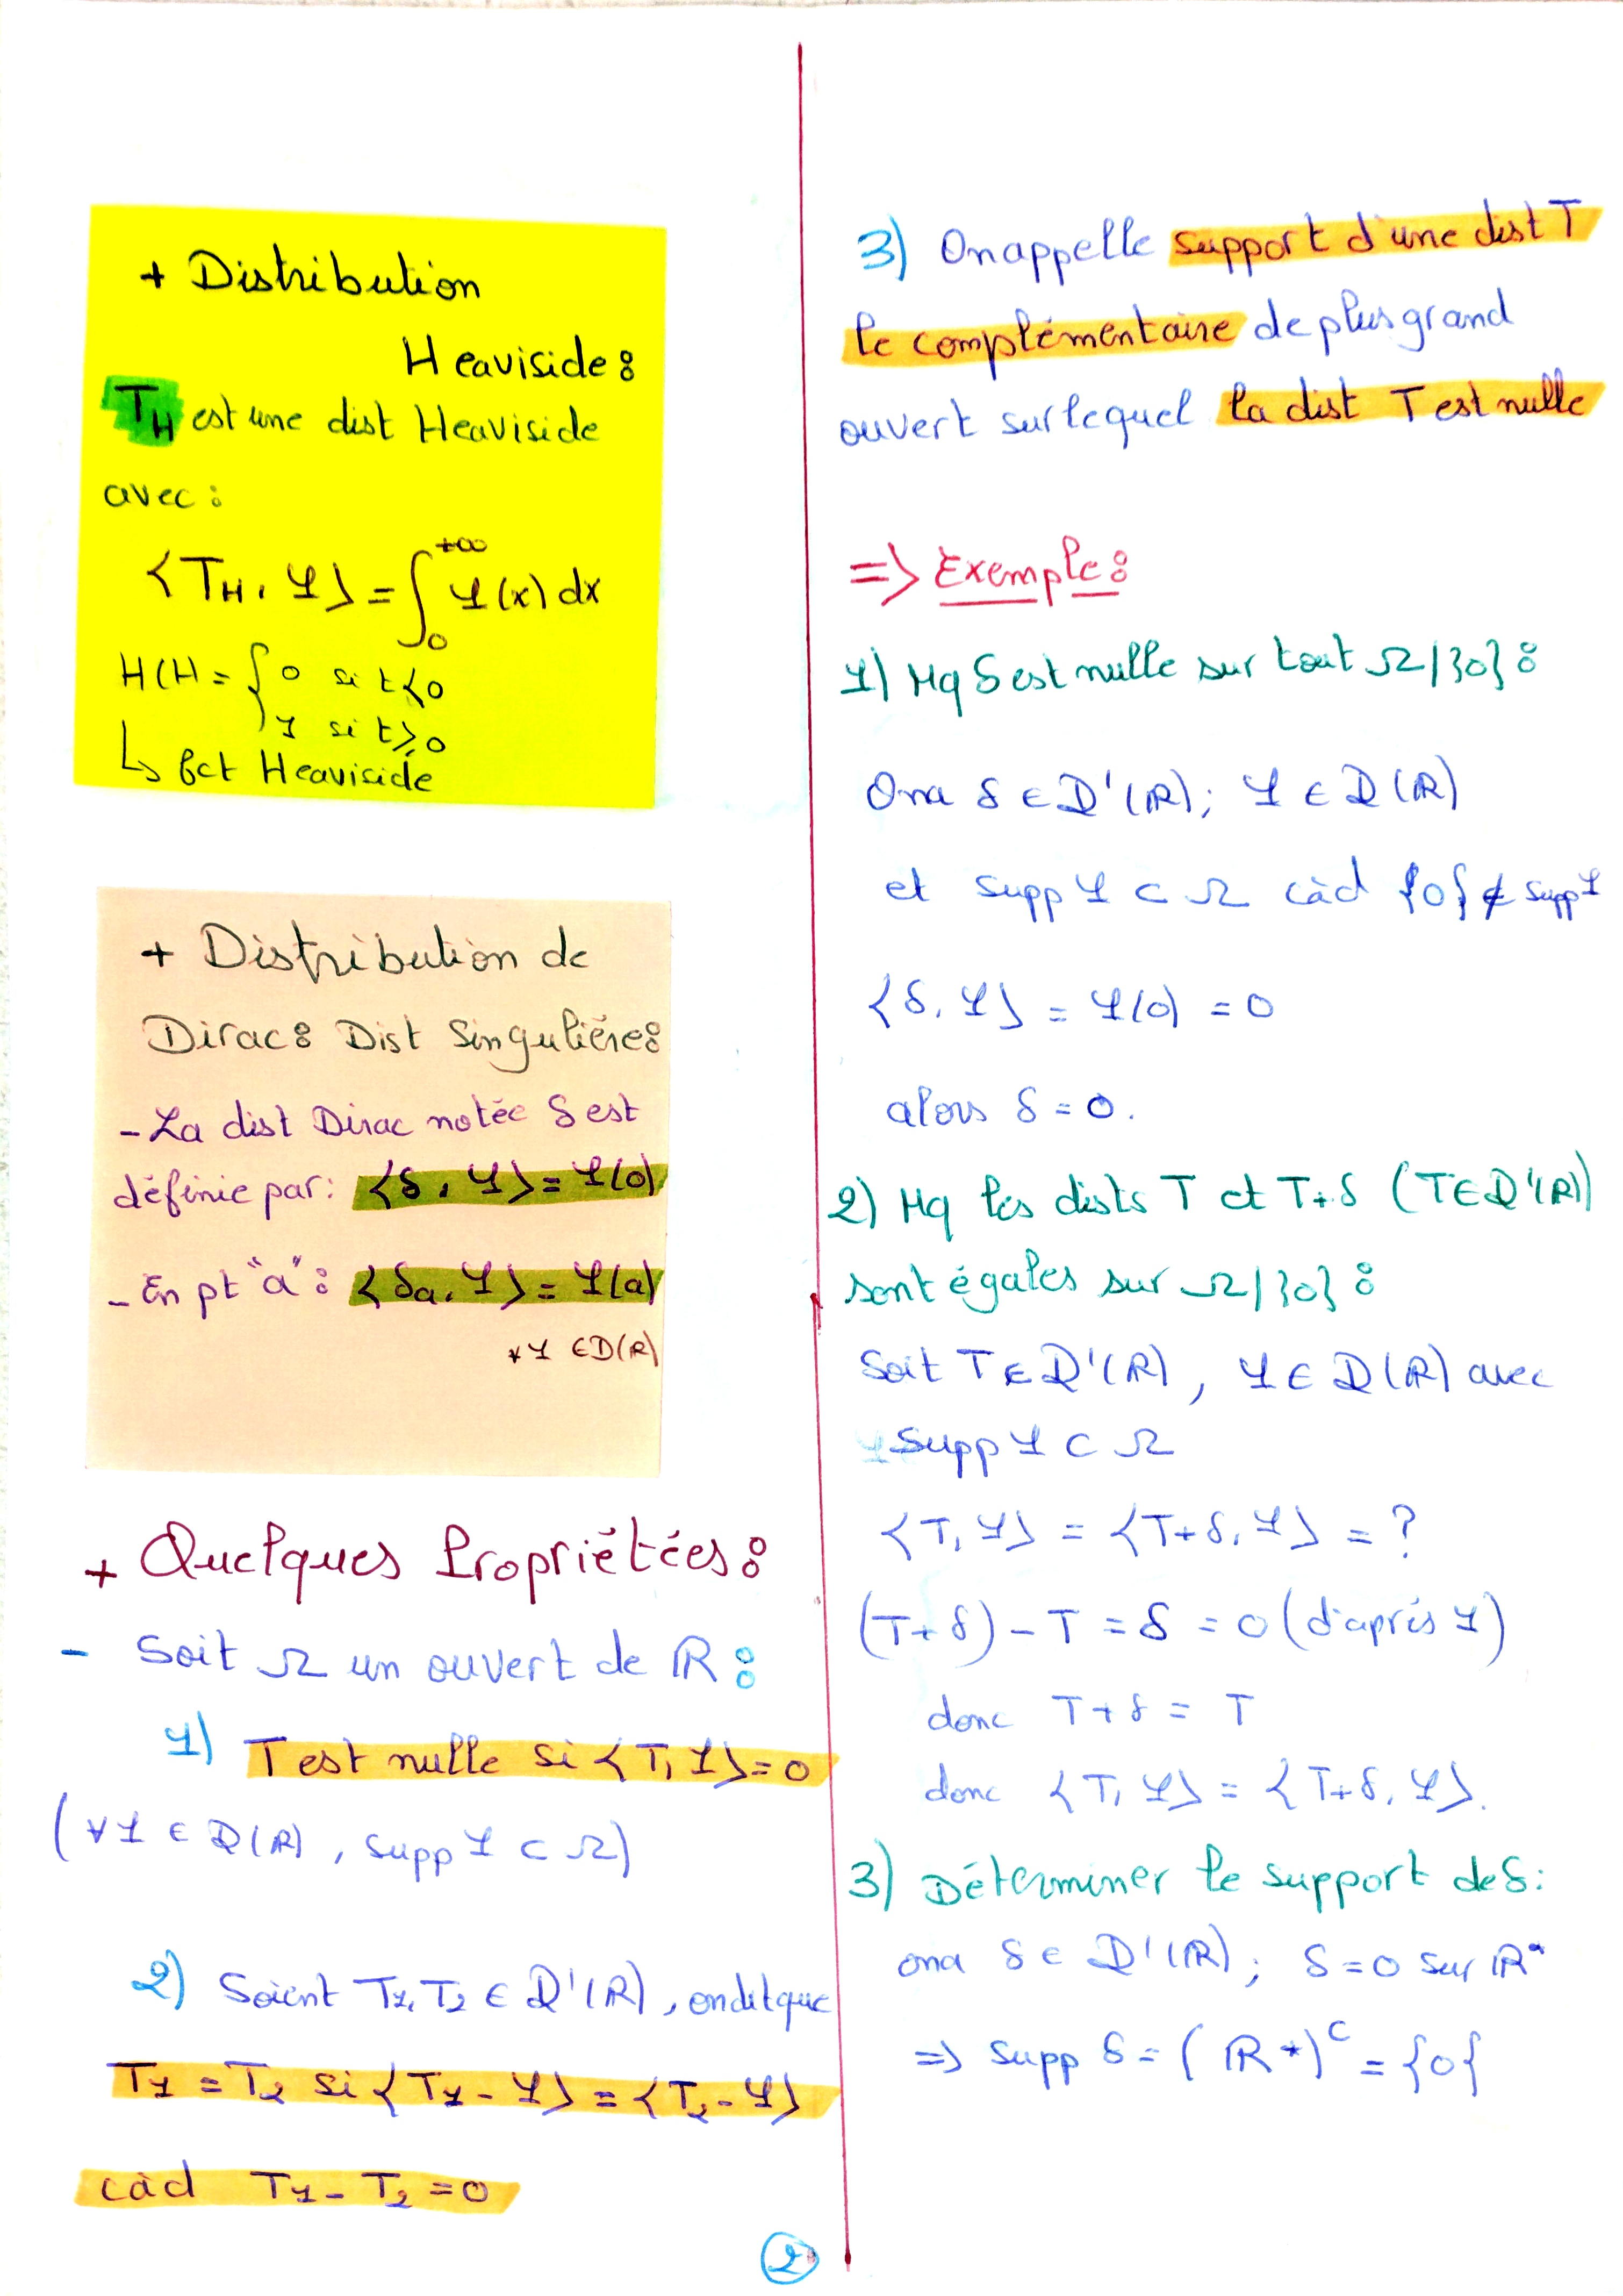 + Distribution
Heaviside :
T_H est une dist Heaviside
avec :
<T_H, φ> = ∫_0^{+∞} φ(x) dx
H(t) = { 0 si t<0
1 si t≥0
↳ fct Heaviside
+ Distribution de
Dirac : Dist Singulière :
- La dist Dirac notée δ est
définie par : <δ, φ> = φ(0)
- En pt "a" : <δa, φ> = φ(a)
∀φ ∈ D(ℝ)
+ Quelques Propriétées :
- Soit Ω un ouvert de ℝ :
1) T est nulle si <T, φ> = 0
(∀φ ∈ D(ℝ), supp φ ⊂ Ω)
2) Soient T1, T2 ∈ D'(ℝ), on dit que
T1 = T2 si <T1 - φ> = <T2 - φ>
càd T1 - T2 = 0
3) On appelle support d'une dist T
le complémentaire de plus grand
ouvert sur lequel la dist T est nulle
=> Exemple :
1) Mq δ est nulle sur tout Ω/{0} :
On a δ ∈ D'(ℝ) ; φ ∈ D(ℝ)
et supp φ ⊂ Ω càd {0} ∉ supp φ
<δ, φ> = φ(0) = 0
alors δ = 0.
2) Mq les dists T et T+δ (T∈D'(ℝ))
sont égales sur Ω/{0} :
Soit T ∈ D'(ℝ), φ ∈ D(ℝ) avec
supp φ ⊂ Ω
<T, φ> = <T+δ, φ> = ?
(T+δ) - T = δ = 0 (d'après 1)
donc T+δ = T
donc <T, φ> = <T+δ, φ>.
3) Déterminer le support de δ :
on a δ ∈ D'(ℝ) ; δ = 0 sur ℝ*
=> supp δ = (ℝ*)^c = {0}
2